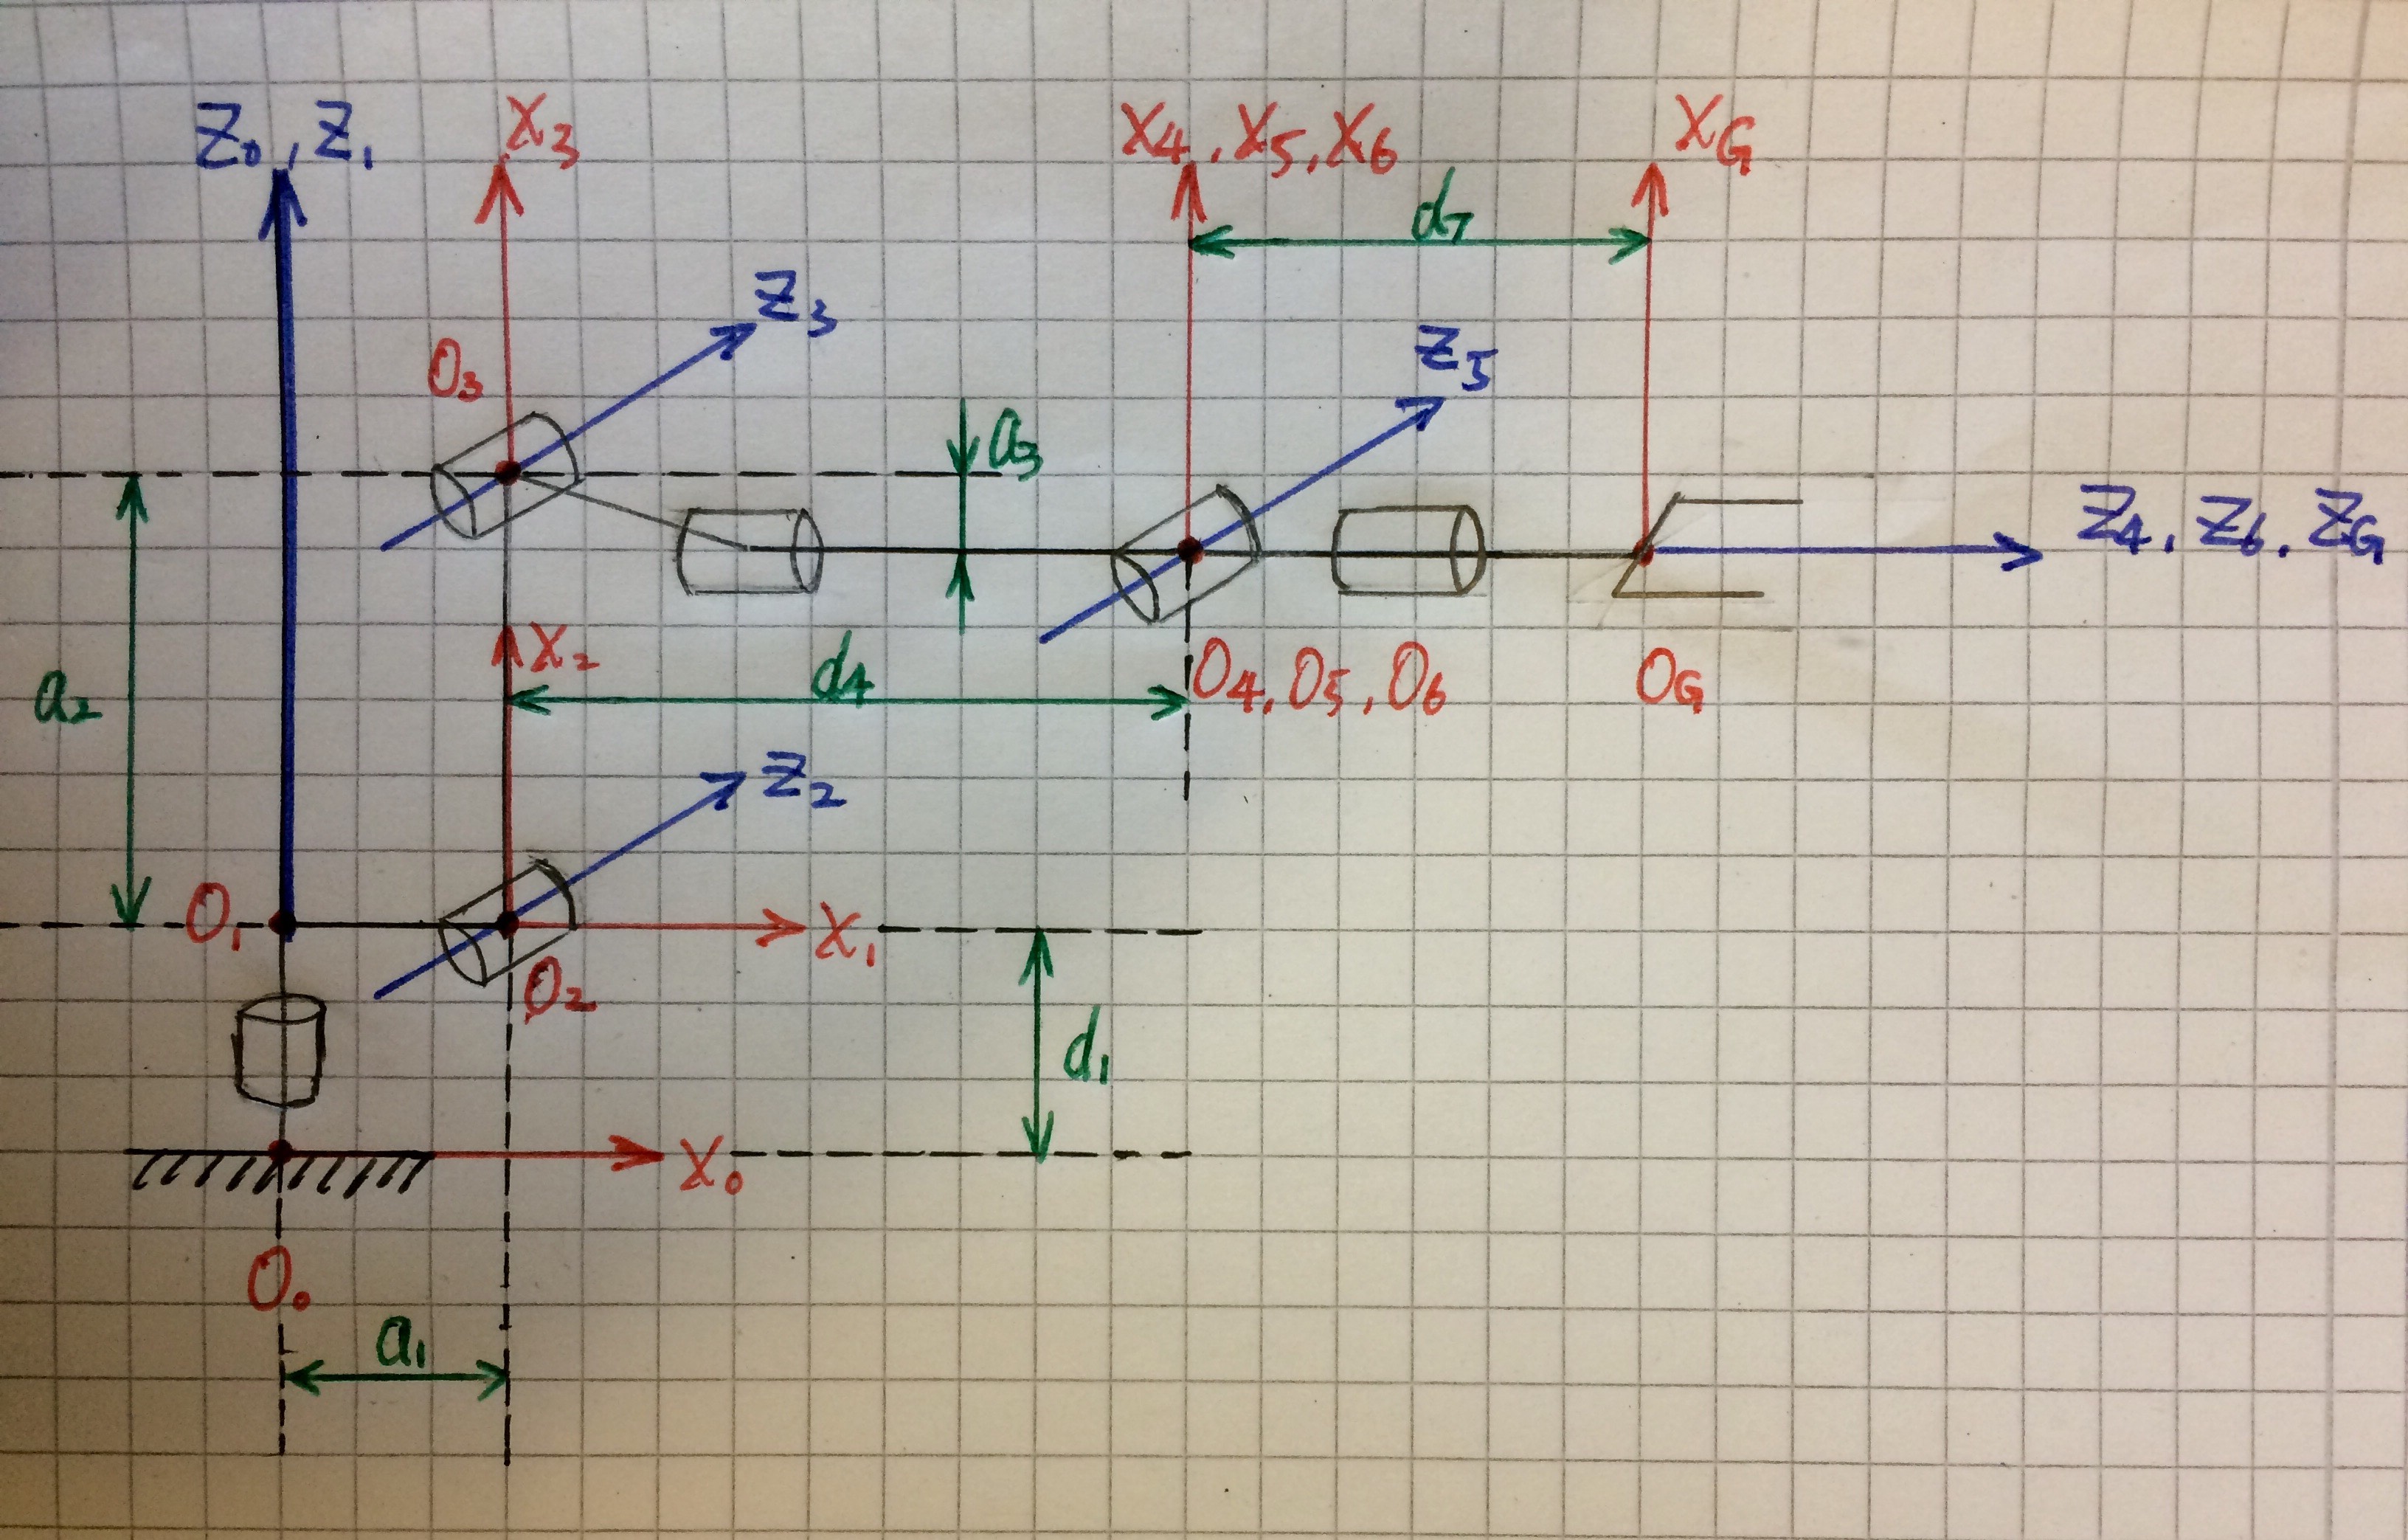 Z₀, Z₁
X₃
X₄, X₅, X₆
X_G
d₇
Z₃
Z₅
O₃
a₃
Z₄, Z₆, Z_G
X₂
d₄
O₄, O₅, O₆
O_G
a₂
Z₂
O₁
X₁
O₂
d₁
X₀
O₀
a₁